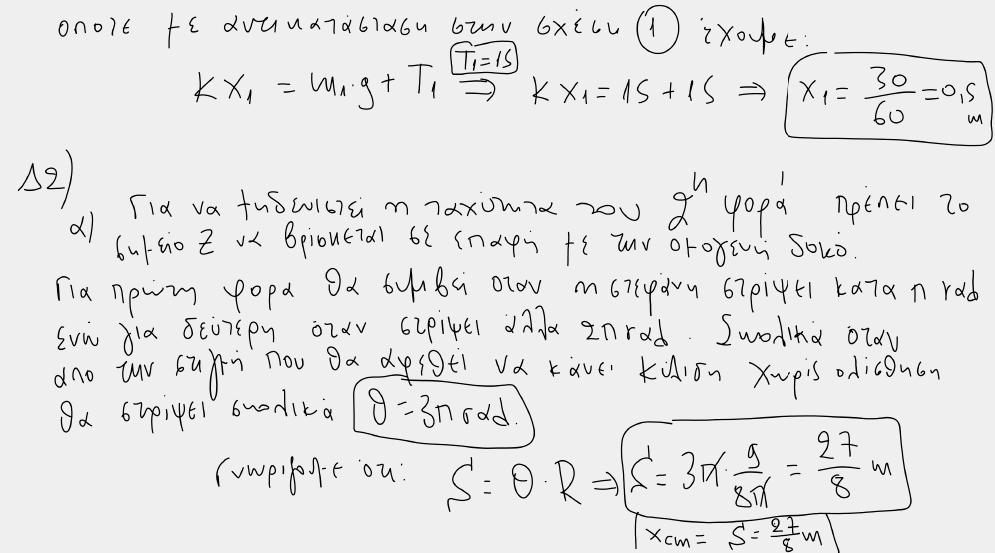 οποτε με αντικατάσταση στην σχέση ① έχουμε:
K X₁ = m₁·g + T₁ ⇒ (T₁=15) K X₁ = 15 + 15 ⇒ X₁ = 30/60 = 0,5 m
Δ2)
α) Για να μηδενιστεί η ταχύτητα του 2η φορά πρέπει το
σημείο Z να βρίσκεται σε επαφή με την ομογενή δοκό.
Για πρώτη φορα θα συμβεί όταν η στεφάνη στρίψει κατα π rad
ενώ για δεύτερη όταν στρίψει άλλα 2π rad. Συνολικά όταν
απο την στιγμή που θα αφεθεί να κάνει κύλιση χωρίς ολίσθηση
θα στρίψει συνολικά θ = 3π rad.
Γνωρίζουμε ότι: S = θ·R ⇒ S = 3π · 9/8π = 27/8 m
x cm = S = 27/8 m